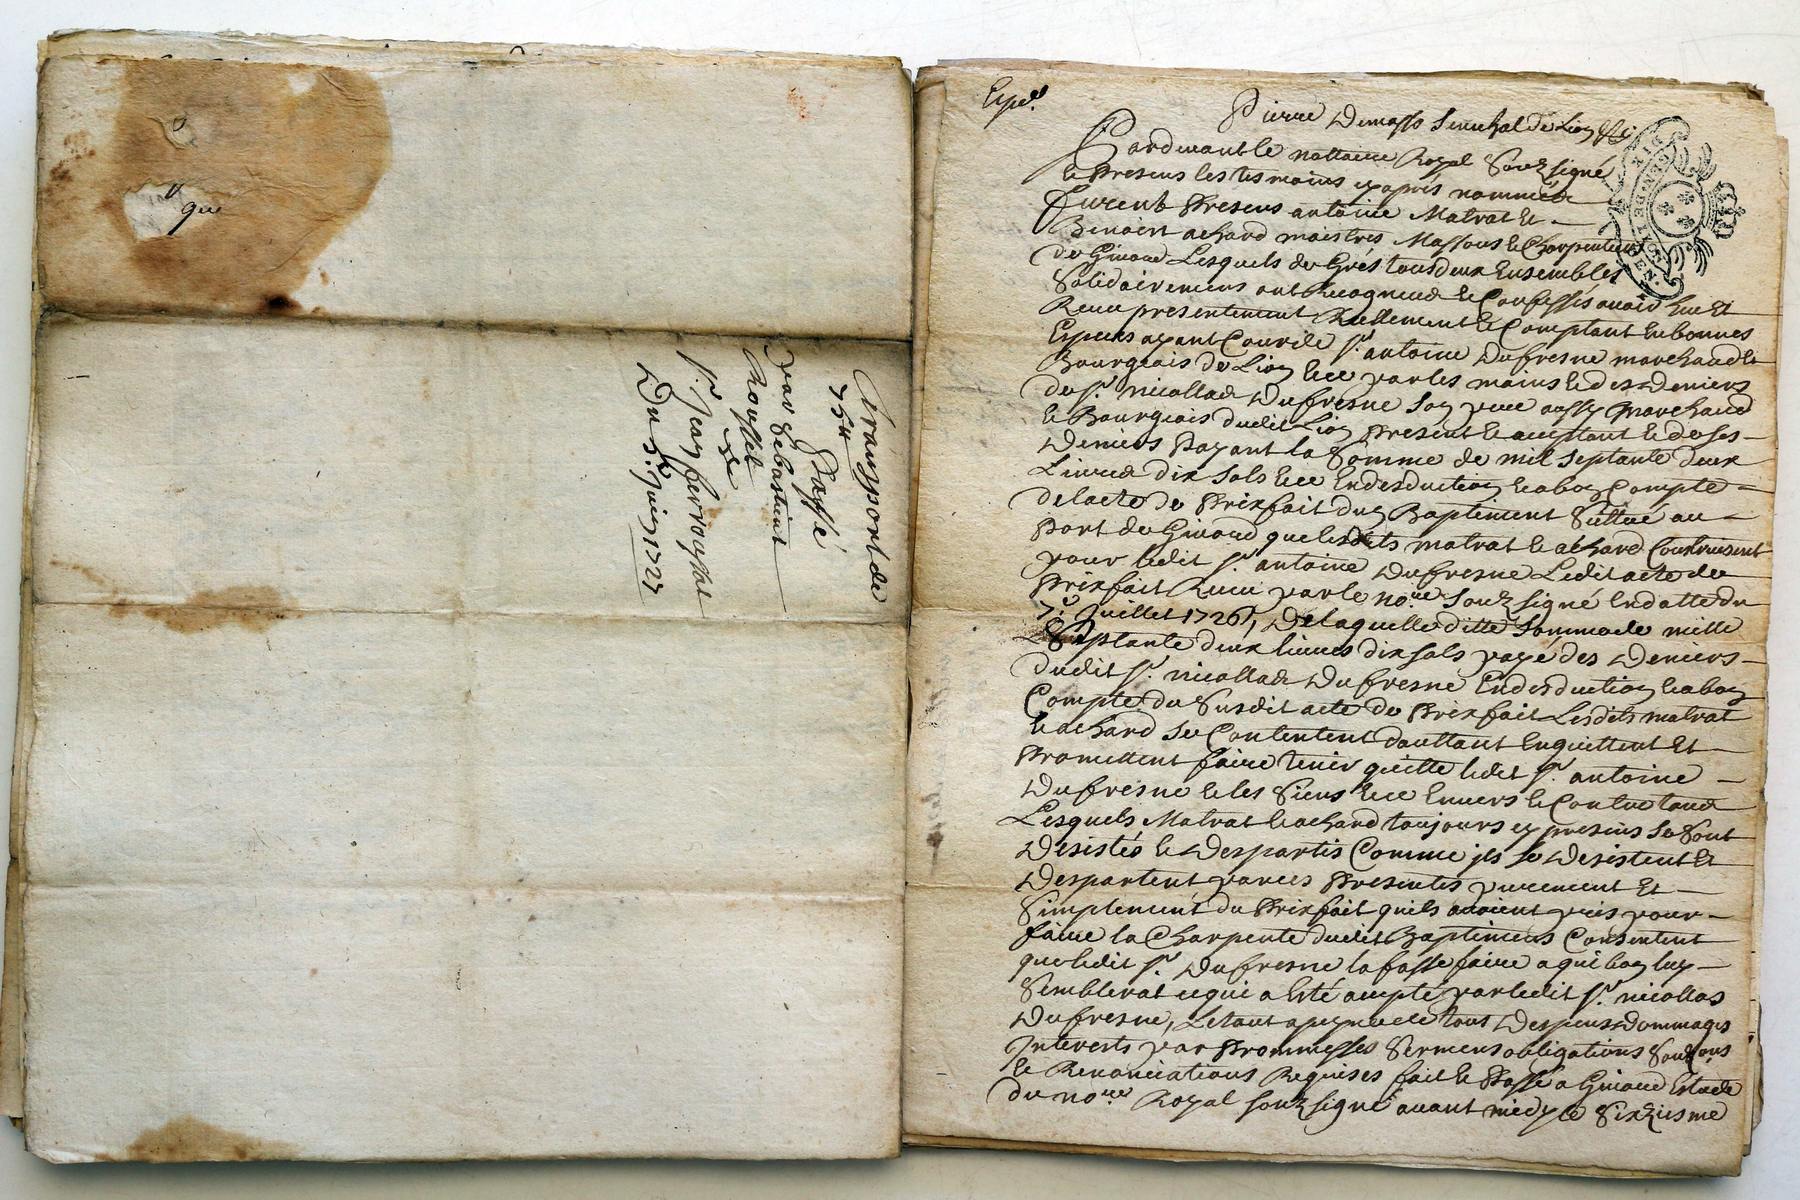 que
Transport de
75 ₶
Passé
par Sebastient
Rousset
a
Sr. Jean ferroussat
Du 5e. Juin 1727
Expedé
Pierre Demasso Senechal de Lion
GEN. DE LYON
Pardevant le nottaire Royal Souzsigné
et Presens les tesmoins cy aprés nommés
furent Presens antoine Matrat et
Benoist achard maistres Massons et Charpentiers
de Givord Lesquels de Grés tous deux Ensembles
Solidairement ont Recogneus et Confessés avoir heu Et
Receu presentement Reellement et Comptant En bonnes
Especes ayant Cours de sr. antoine Dufresne marchand et
Bourgeois de Lion Et ce par les mains et des Deniers
de sr. nicollas Dufresne Son pere aussy Marchand
et Bourgeois dudit Lion Present et aceptant et de ses
Deniers Payant la Somme de mil Septante deux
Livres dix Sols Et ce En desduction et a bon Compte
de lacte de Prixfait dun Baptiment Scittué au
Port de Givord que lesdits matrat et achard Construisent
pour ledit sr. antoine Dufresne Ledit acte de
Prixfait Receu par le nore. Souzsigné En datte du
7e. Juillet 1726, De laquelle ditte Somme de mille
Septante deux livres dix sols payé des Deniers
dudit sr. nicollas Dufresne En desduction et a bon
Compte du Susdit acte de Prixfait Lesdits matrat
et achard se Contentent dauttant Enquittent Et
Promettent faire tenir quitte ledit sr. antoine
Dufresne et les Siens Et ce Envers et Contre tous
Lesquels Matrat et achard toujours cy presens se Sont
Desistés et Despartis Comme jls se Desistent Et
Despartent par ces Presentes purement Et
Simplement du Prixfait quils avoient pris pour
faire la Charpente dudit Baptiment Consentent
que ledit sr. Dufresne la fasse faire a qui bon luy
Semblerat ce qui a Esté acepté par ledit sr. nicollas
Dufresne, Le tout a peyne de tous Despens Dommages
Interests par Promesses Sermens obligations
et Renonciations Requises fait et Passé a Givord Estude
du nore. Royal souzsigné avant midy le Sixziesme